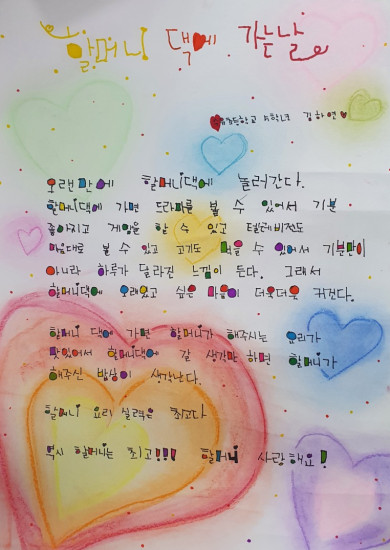 할머니 댁에 가는날
초등학교 4학년 김하연
오랜만에 할머니댁에 놀러간다.
할머니댁에 가면 드라마를 볼 수 있어서 기분
좋아지고 게임을 할 수 있고 텔레비전도
마음대로 볼 수 있고 고기도 먹을 수 있어서 기분만이
아니라 하루가 달라진 느낌이 든다. 그래서
할머니댁에 오래있고 싶은 마음이 더욱더욱 커진다.
할머니 댁에 가면 할머니가 해주시는 요리가
맛있어서 할머니댁에 갈 생각만 하면 할머니가
해주신 밥상이 생각난다.
할머니 요리 실력은 최고다
역시 할머니는 최고!!! 할머니 사랑해요!